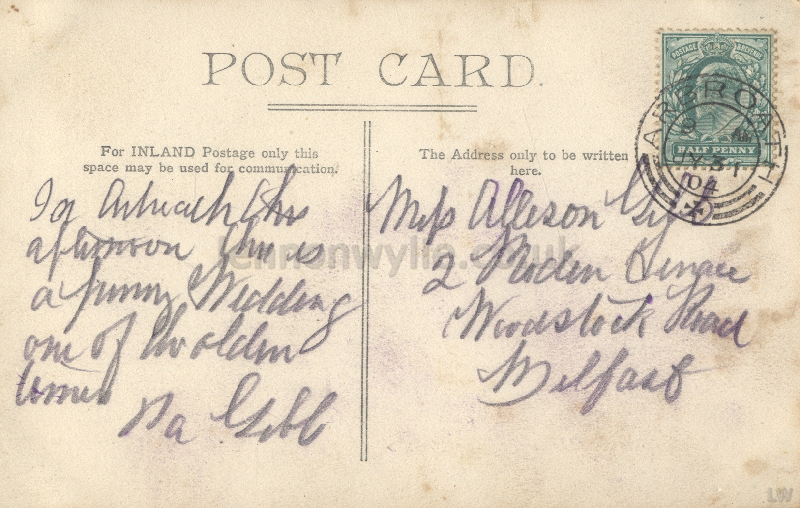 POST CARD.
For INLAND Postage only this
space may be used for communication.
The Address only to be written
here.
POSTAGE REVENUE
HALF PENNY
ARBROATH
JY 31
04
afternoon this is
a funny Wedding
one of the olden
times
Pa Gibb
Miss Allison Gibb
2 Roden Terrace
Woodstock Road
Belfast
lennonwylie.co.uk
LW